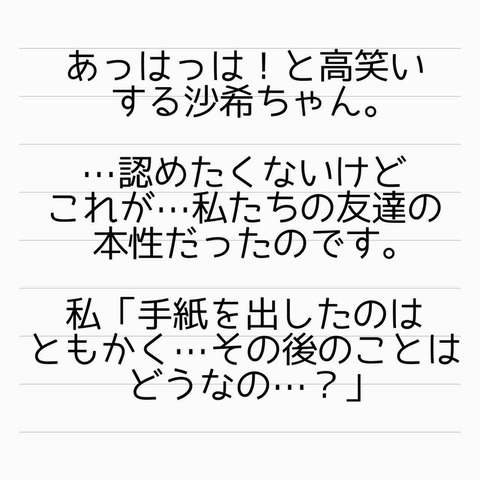 あっはっは！と高笑い
する沙希ちゃん。
…認めたくないけど
これが…私たちの友達の
本性だったのです。
私「手紙を出したのは
ともかく…その後のことは
どうなの…？」